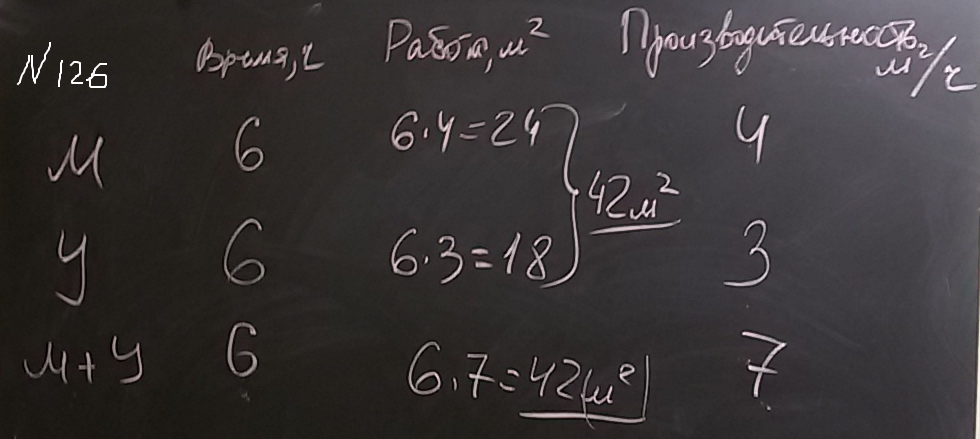 N 126 Время, ч Работа, м² Производительность, м²/ч
М 6 6·4=24 4
42м²
У 6 6·3=18 3
М+У 6 6·7=42м² 7